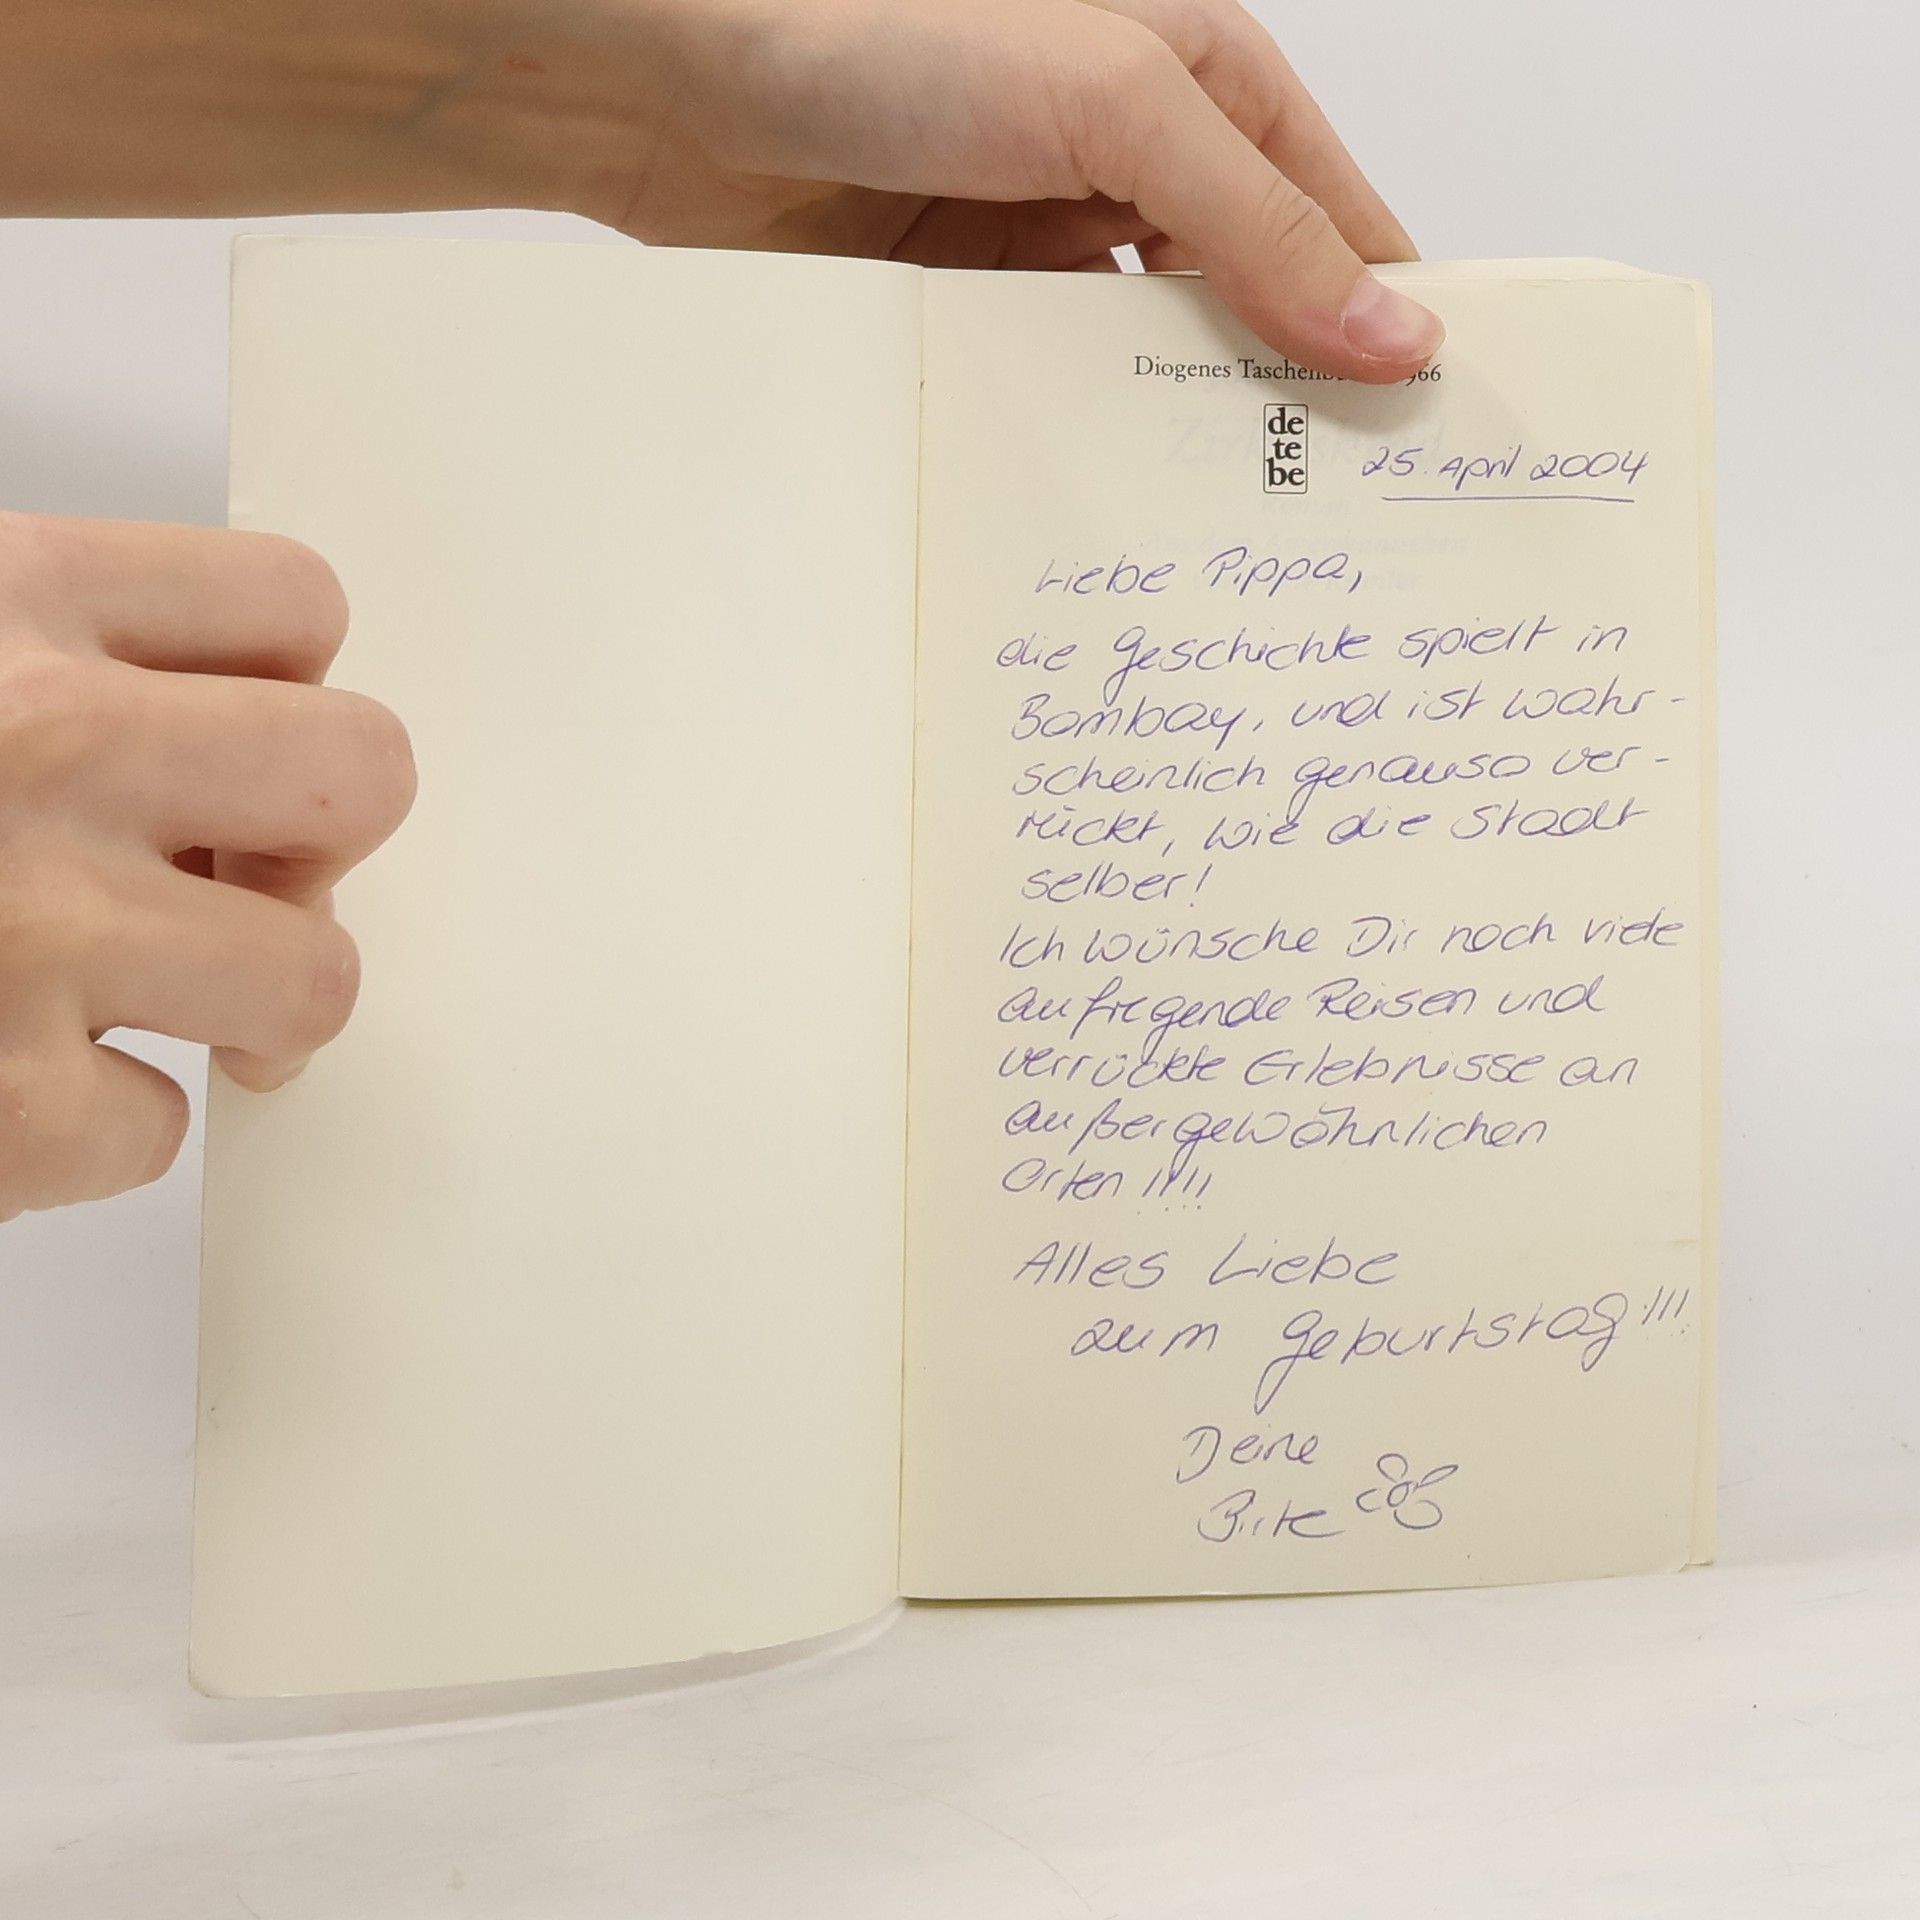 Diogenes Taschen 966
de
te
be
25. April 2004
Liebe Pippa,
die Geschichte spielt in
Bombay, und ist wahr-
scheinlich genauso ver-
rückt, wie die Stadt
selber!
Ich wünsche Dir noch viele
aufregende Reisen und
verrückte Erlebnisse an
außergewöhnlichen
Orten !!!!
Alles Liebe
zum Geburtstag!!!
Deine
Birte